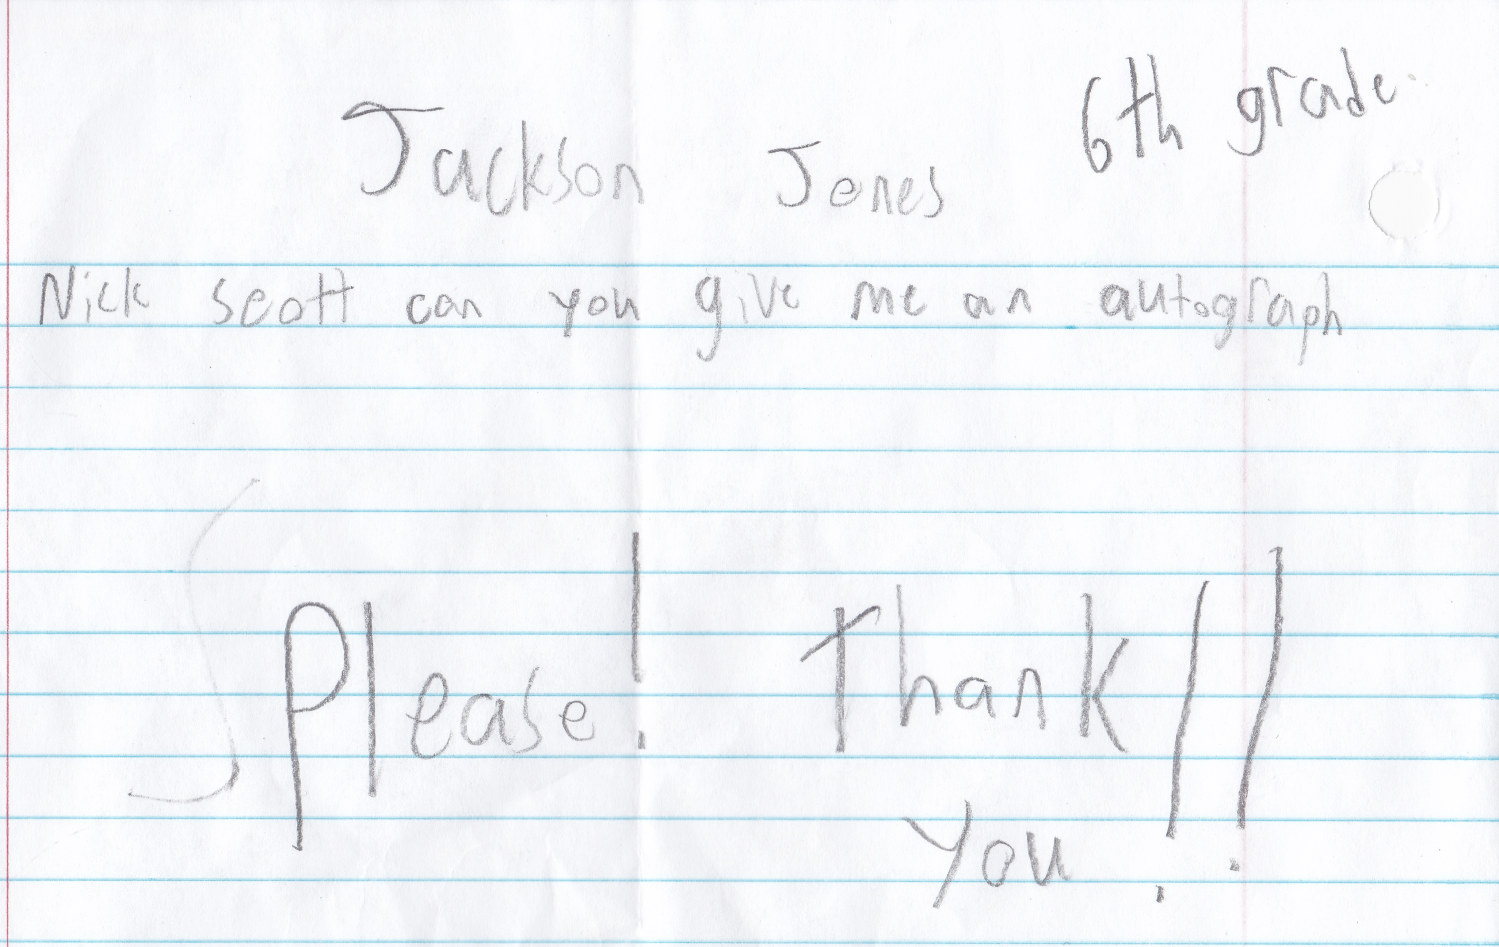 Jackson Jones 6th grade.
Nick scott can you give me an autograph
Please! Thank
you!!